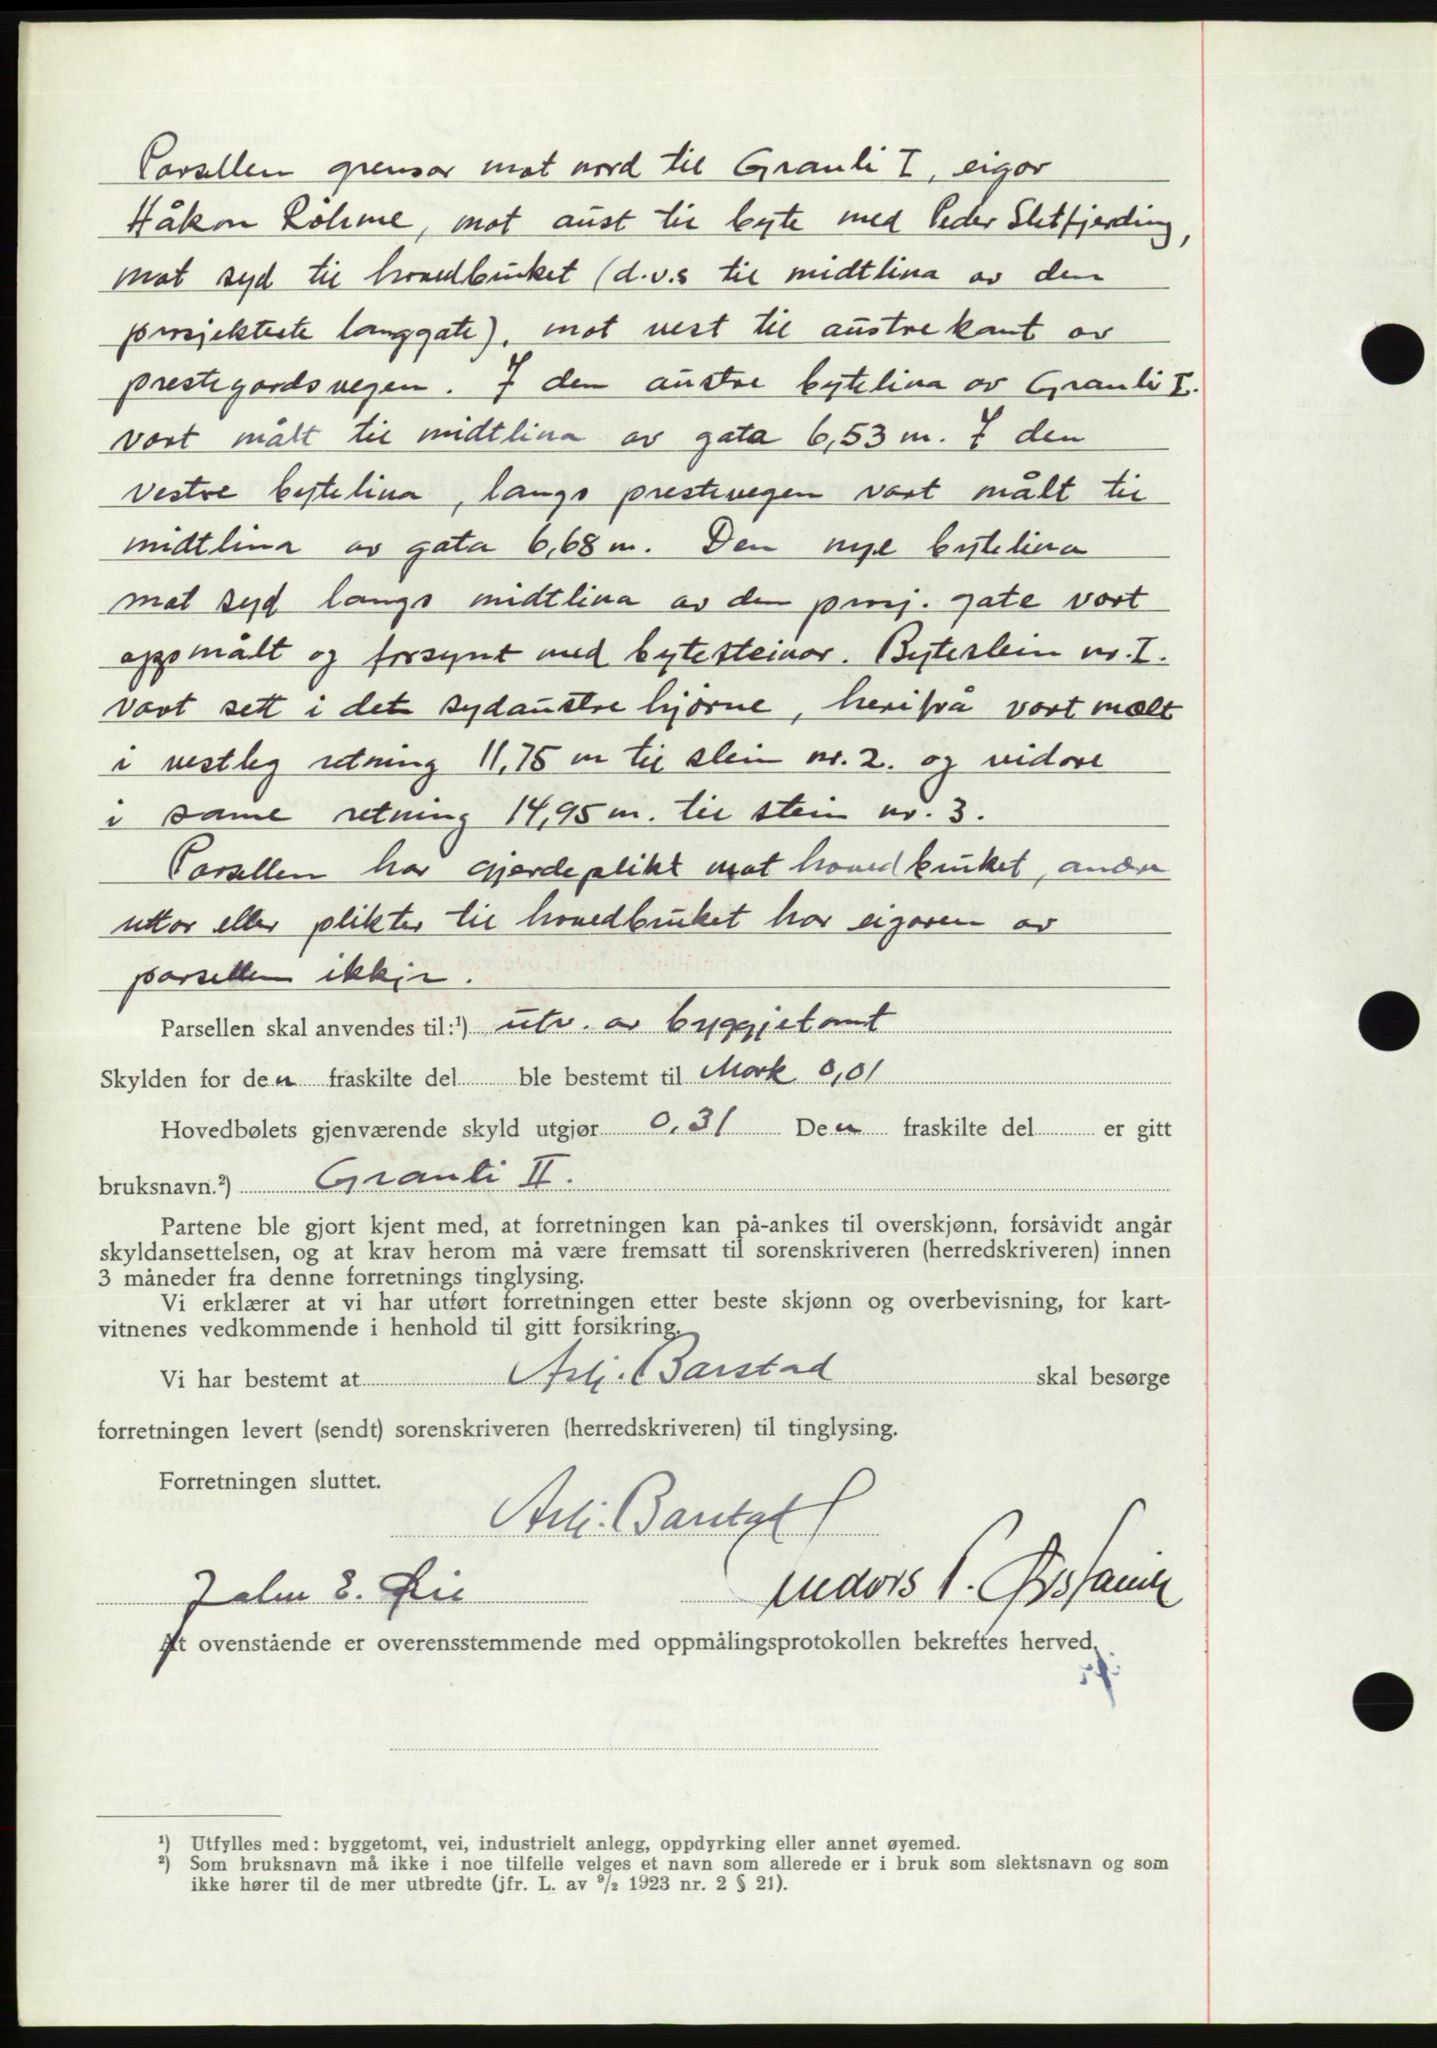 Parsellen grensar mot nord til Granli I, eigar
Håkon Röhme, mot aust til byte med Peder Sletfjerding,
mot syd til hovedbruket (d.v.s til midtlina av den
prosjekterte langgate), mot vest til austre kant av
prestegardsvegen. I den austre bytelina av Granli I.
vart målt til midtlina av gata 6,53 m. I den
vestre bytelina, langs prestevegen vart målt til
midtlina av gata 6,68 m. Den nye bytelina
mot syd langs midtlina av den prosj. gate vart
oppmålt og forsynt med bytesteinar. Bytestein nr. I.
vart sett i det sydaustre hjørne, herifrå vart målt
i vestleg retning 11,75 m til stein nr. 2. og vidare
i same retning 14,95 m. til stein nr. 3.
Parsellen har gjerdeplikt mot hovedbruket, andre
uttor eller plikter til hovedbruket har eigaren av
parsellen ikkje.
Parsellen skal anvendes til:¹) utv. av byggjetomt
Skylden for den fraskilte del ble bestemt til Mark 0,01
Hovedbølets gjenværende skyld utgjør 0,31 Den fraskilte del er gitt
bruksnavn.²) Granli II.
Partene ble gjort kjent med, at forretningen kan på-ankes til overskjønn, forsåvidt angår
skyldansettelsen, og at krav herom må være fremsatt til sorenskriveren (herredskriveren) innen
3 måneder fra denne forretnings tinglysing.
Vi erklærer at vi har utført forretningen etter beste skjønn og overbevisning, for kart-
vitnenes vedkommende i henhold til gitt forsikring.
Vi har bestemt at Asbj. Barstad skal besørge
forretningen levert (sendt) sorenskriveren (herredskriveren) til tinglysing.
Forretningen sluttet.
Asbj. Barstad
John E. Øie Anders P.
At ovenstående er overensstemmende med oppmålingsprotokollen bekreftes herved.
¹) Utfylles med: byggetomt, vei, industrielt anlegg, oppdyrking eller annet øyemed.
²) Som bruksnavn må ikke i noe tilfelle velges et navn som allerede er i bruk som slektsnavn og som
ikke hører til de mer utbredte (jfr. L. av ⁹/₂ 1923 nr. 2 § 21).